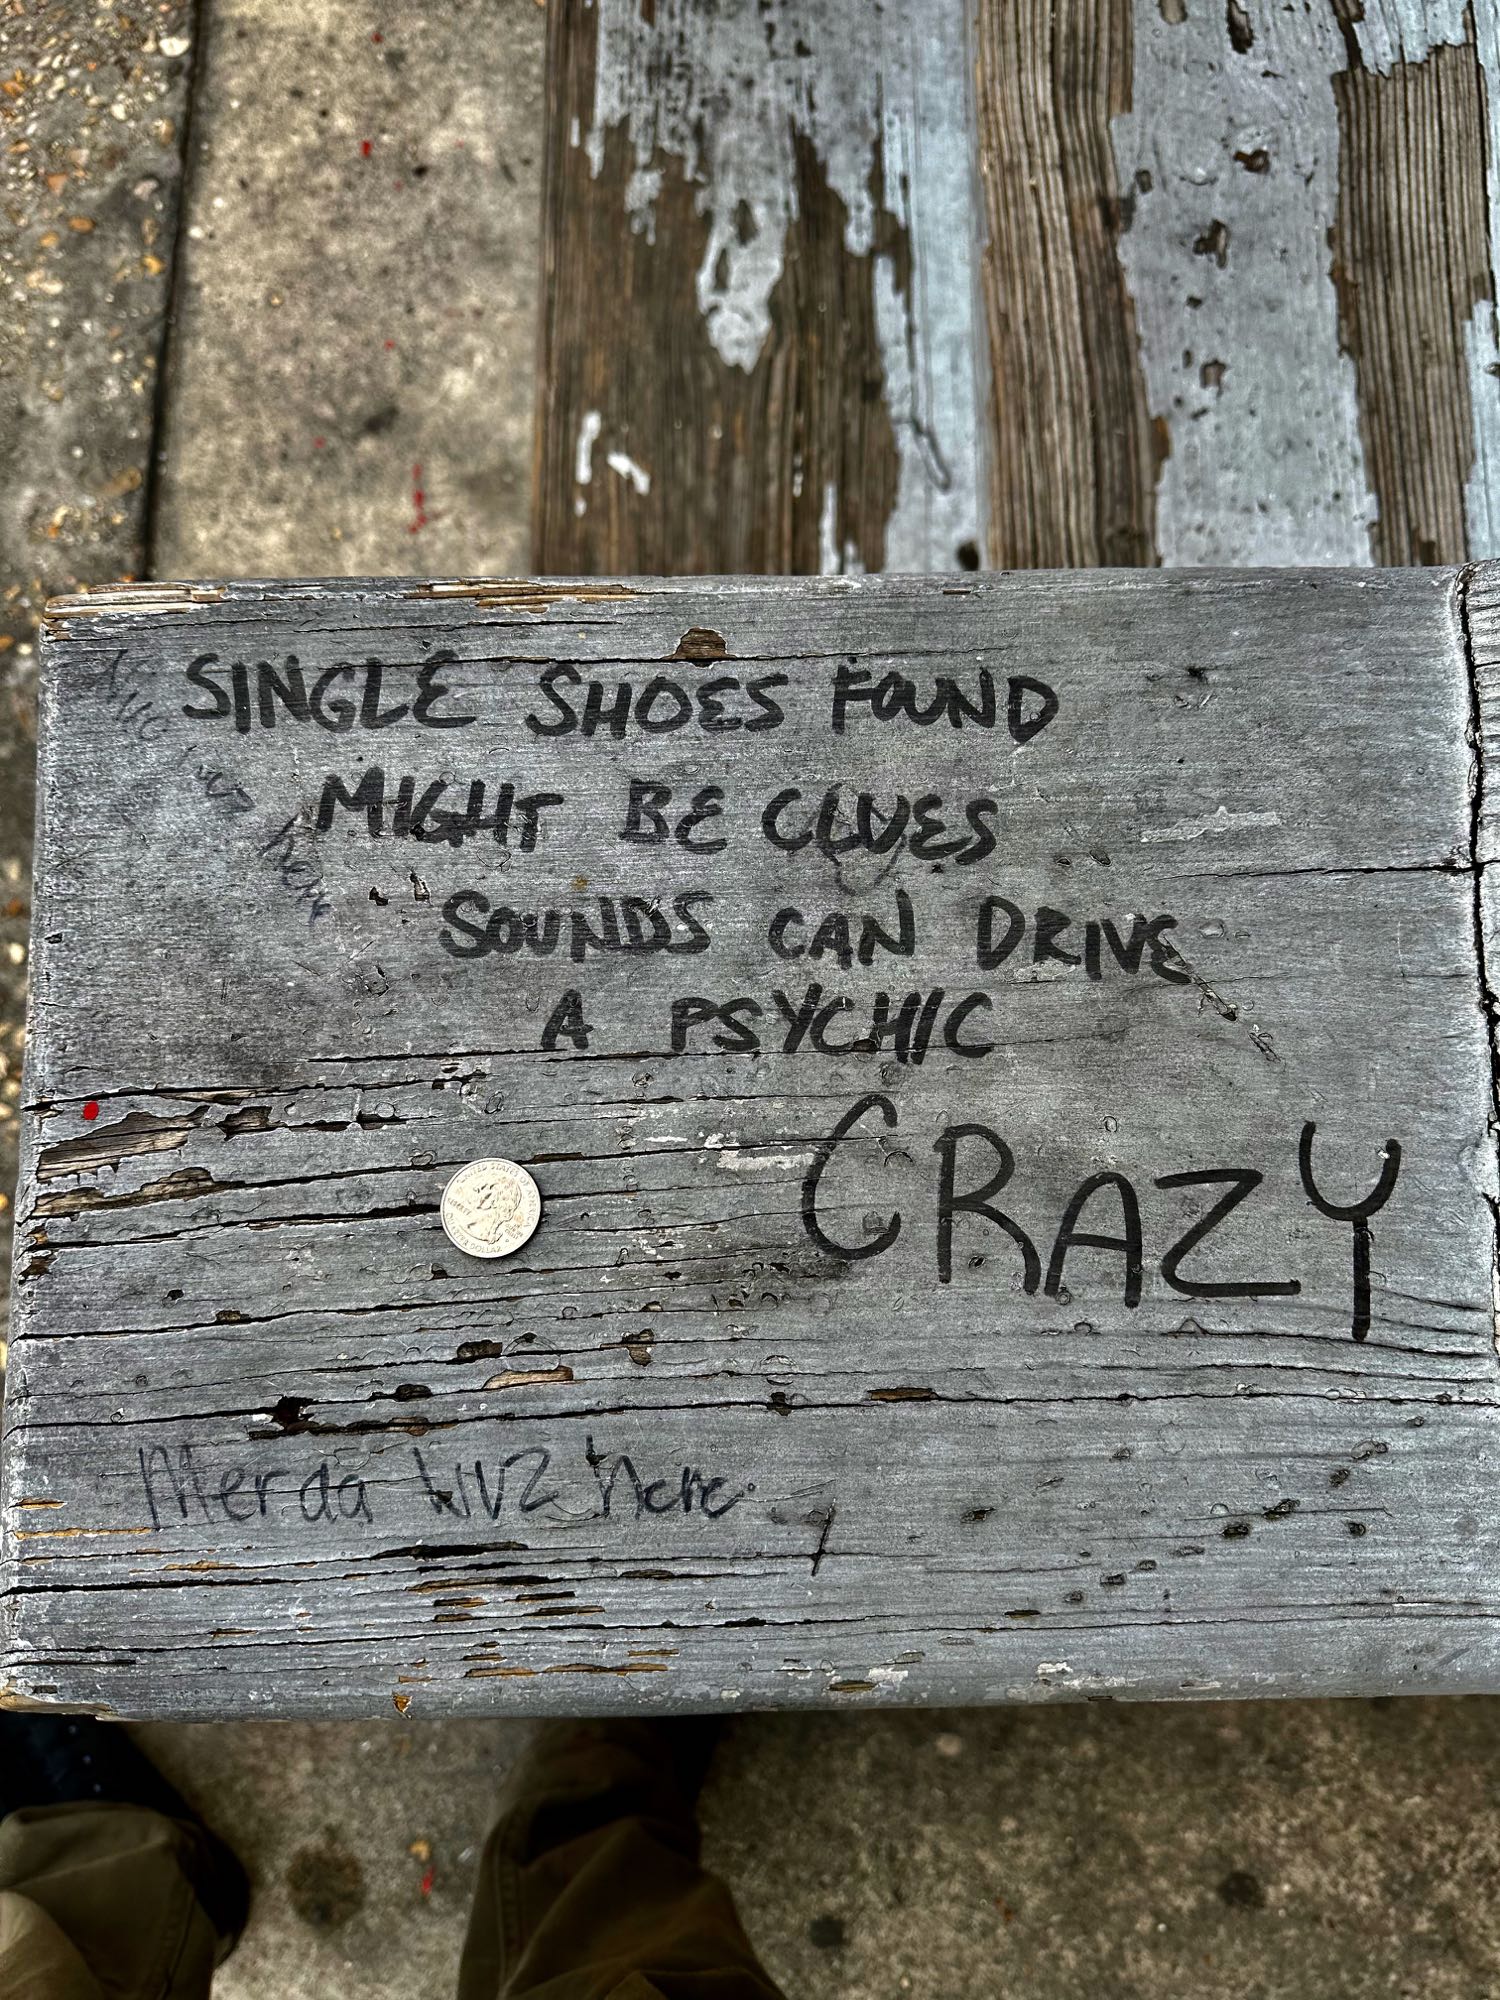 SINGLE SHOES FOUND
MIGHT BE CLUES
SOUNDS CAN DRIVE
A PSYCHIC
CRAZY
UNITED STATES OF AMERICA
LIBERTY
QUARTER DOLLAR
Merda WUZ here
here